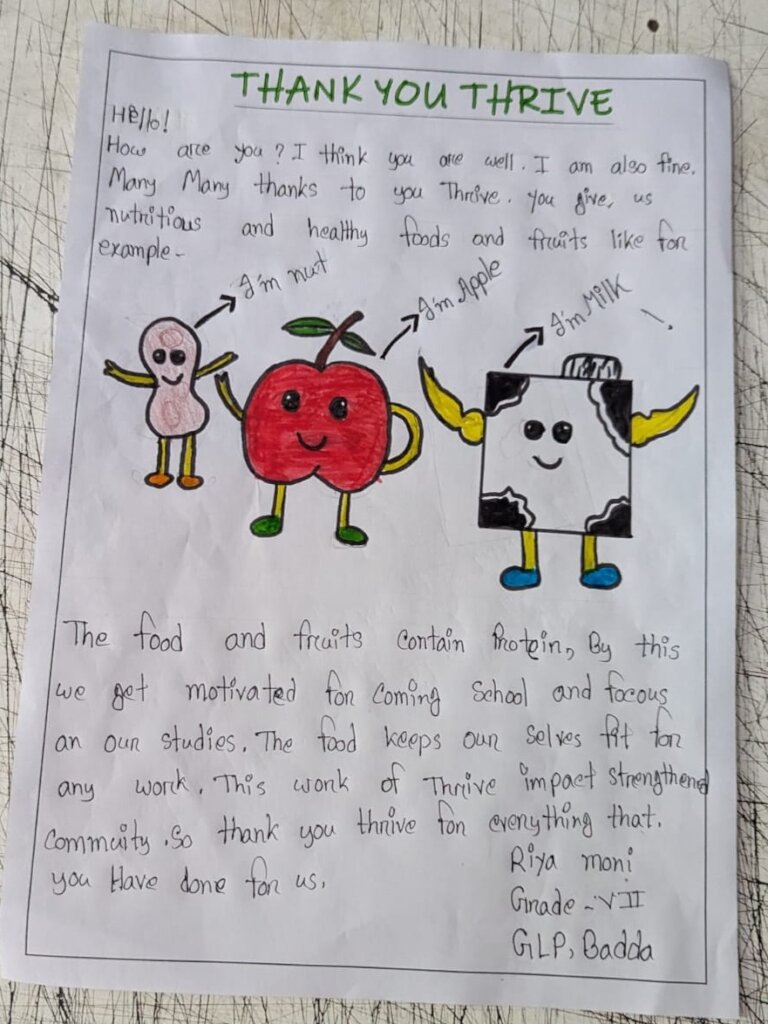 THANK YOU THRIVE
Hello!
How are you? I think you are well. I am also fine.
Many Many thanks to you Thrive. you give, us
nutritious and healthy foods and fruits like for
example-
I'm nut
I'm Apple
I'm Milk
The food and fruits contain Protein, By this
we get motivated for coming School and focous
an our studies. The food keeps our selves fit for
any work. This work of Thrive impact strengthened
Commuity. So thank you thrive for everything that.
you Have done for us.
Riya moni
Grade - VII
GLP, Badda